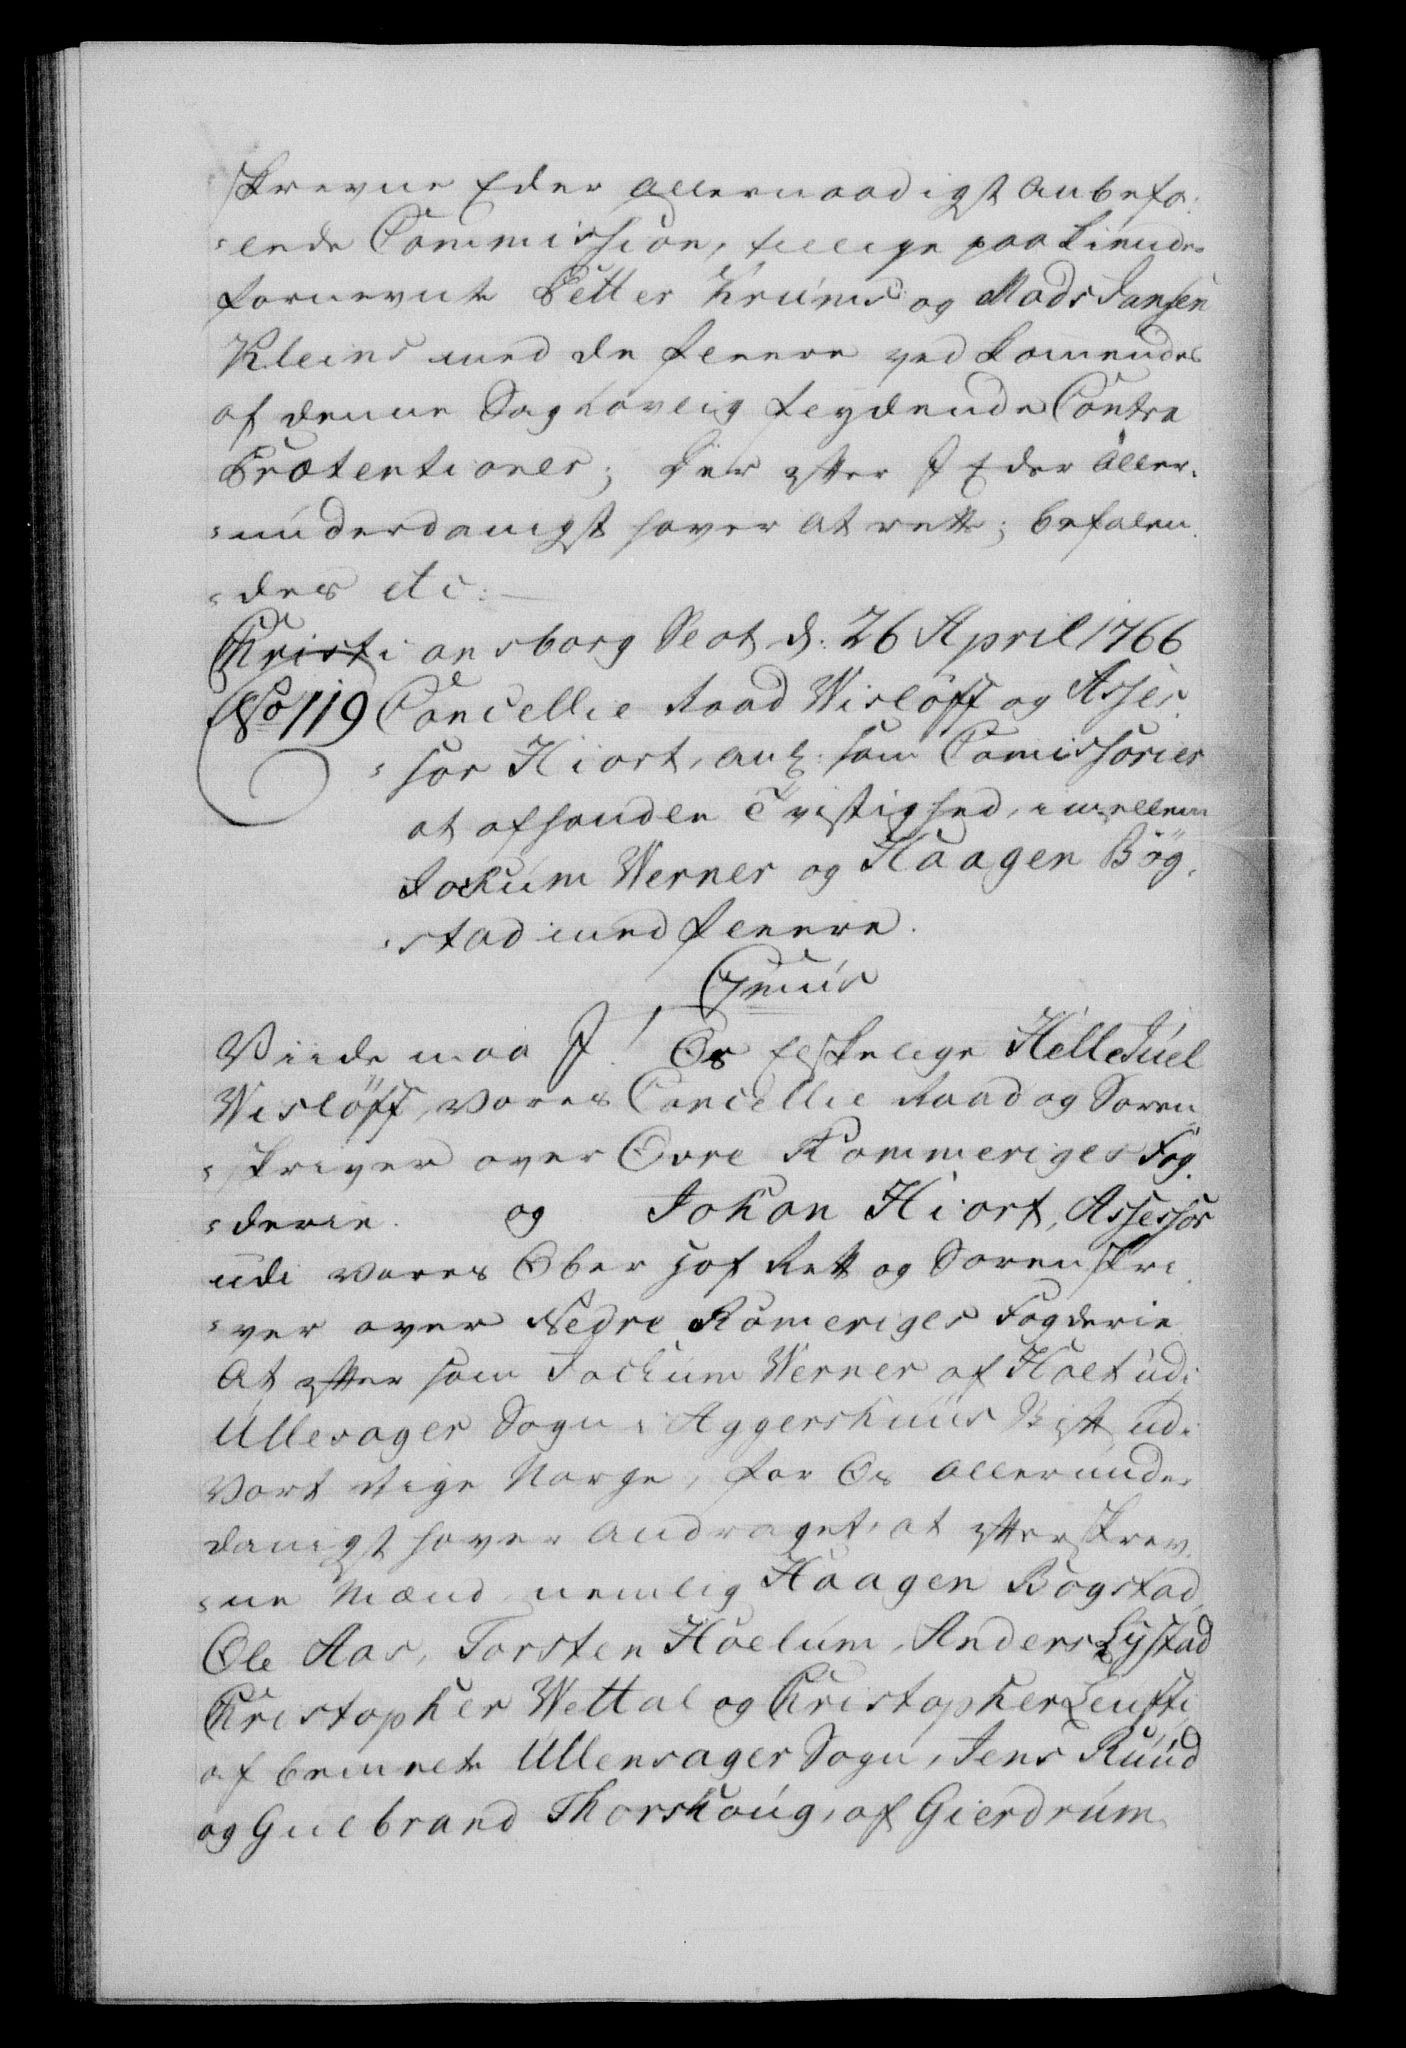 skrevne Eder allernaadigst anbefa-
-lende Commission, tillige paakiende
fornevnte Petter Krums og Mads Jansen
Kleins med de fleere vedkommendes
af denne Sag lovlig leydende Contra
Prætentioner; Der efter I Eder aller-
-underdanigst haver at rette; befalen-
-des etc:
Christiansborg Slot d: 26 April 1766
No 119 Cancellie Raad Wisløff og Asses-
-sor Hiort, anl: som Comissorier
at afhandle Tvistighed, imellem
Jochum Werner og Haagen Bøg-
-stad med fleere.
Gr̅: C7mus
Viide maa I! Os elskelige Helle Juel
Wisløff, vores Cancellie Raad og Soren-
-skriver over Øvre Rommeriges Fog-
-derie. og Johan Hiort, Assessor
udi vores Ober Hof Rett og Sorenskri-
-ver over Nedre Romeriges Fogderie
At efter som Jochum Werner af Holt udi
Ullesager Sogn i Aggershuus Stift udi
Vort Rige Norge, for Os allerunder
danigst haver andraget, at efterskrev-
-ne Mænd nemlig Haagen Bogstad,
Ole Aas, Torsten Hoelum, Anders Lystad
Christopher Wettal og Christopher Leufti,
af bemeldte Ullensager Sogn, Jens Ruud
og Gulbrand Thorshoug, af Gierdrum